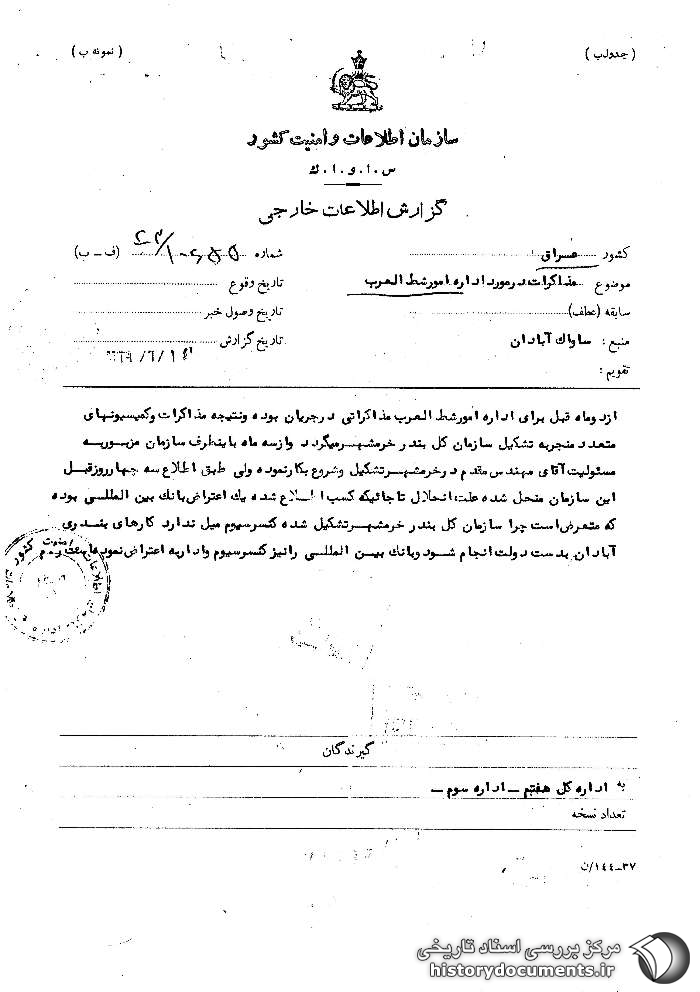 ( جدول ب )
( نمونه ب )
سازمان اطلاعات و امنیت کشور
س . ا . و . ا . ک
گزارش اطلاعات خارجی
کشور عراق
شماره (ف ـ ب)
موضوع مذاکرات در مورد اداره امور شط العرب
تاریخ وقوع
سابقه (عطف):
تاریخ وصول خبر
منبع : ساواک آبادان
تاریخ گزارش
تقویم :
از دو ماه قبل برای اداره امور شط العرب مذاکراتی در جریان بوده و نتیجه مذاکرات و کمیسیونهای
متعدد منجر به تشکیل سازمان کل بندر خرمشهر میگردد و از سه ماه باینطرف سازمان مزبور به
مسئولیت آقای مهندس مقدم در خرمشهر تشکیل و شروع بکار نموده ولی طبق اطلاع سه چهار روز قبل
این سازمان منحل شده علت انحلال تا جائیکه کسب اطلاع شده یک اعتراض بانک بین المللی بوده
که متعرض است چرا سازمان کل بندر خرمشهر تشکیل شده کنسرسیوم میل ندارد کارهای بندری
آبادان بدست دولت انجام شود و بانک بین المللی را نیز کنسرسیوم وادار به اعتراض نموده
گیرندگان
به اداره کل هفتم ـ اداره سوم ـ
تعداد نسخه
۳۷ــ۱۴۴/ن
مرکز بررسی اسناد تاریخی
historydocuments.ir